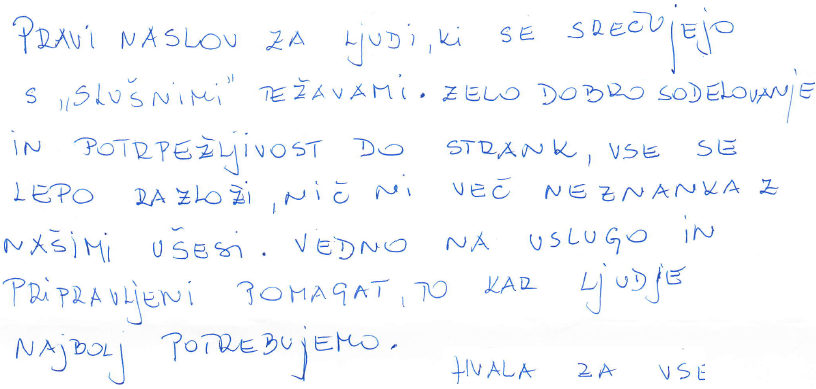 PRAVI NASLOV ZA LJUDI, KI SE SREČUJEJO
S „SLUŠNIMI" TEŽAVAMI. ZELO DOBRO SODELOVANJE
IN POTRPEŽLJIVOST DO STRANK, VSE SE
LEPO RAZLOŽI, NIČ NI VEČ NEZNANKA Z
NAŠIMI UŠESI. VEDNO NA USLUGO IN
PRIPRAVLJENI POMAGAT, TO KAR LJUDJE
NAJBOLJ POTREBUJEMO.
HVALA ZA VSE